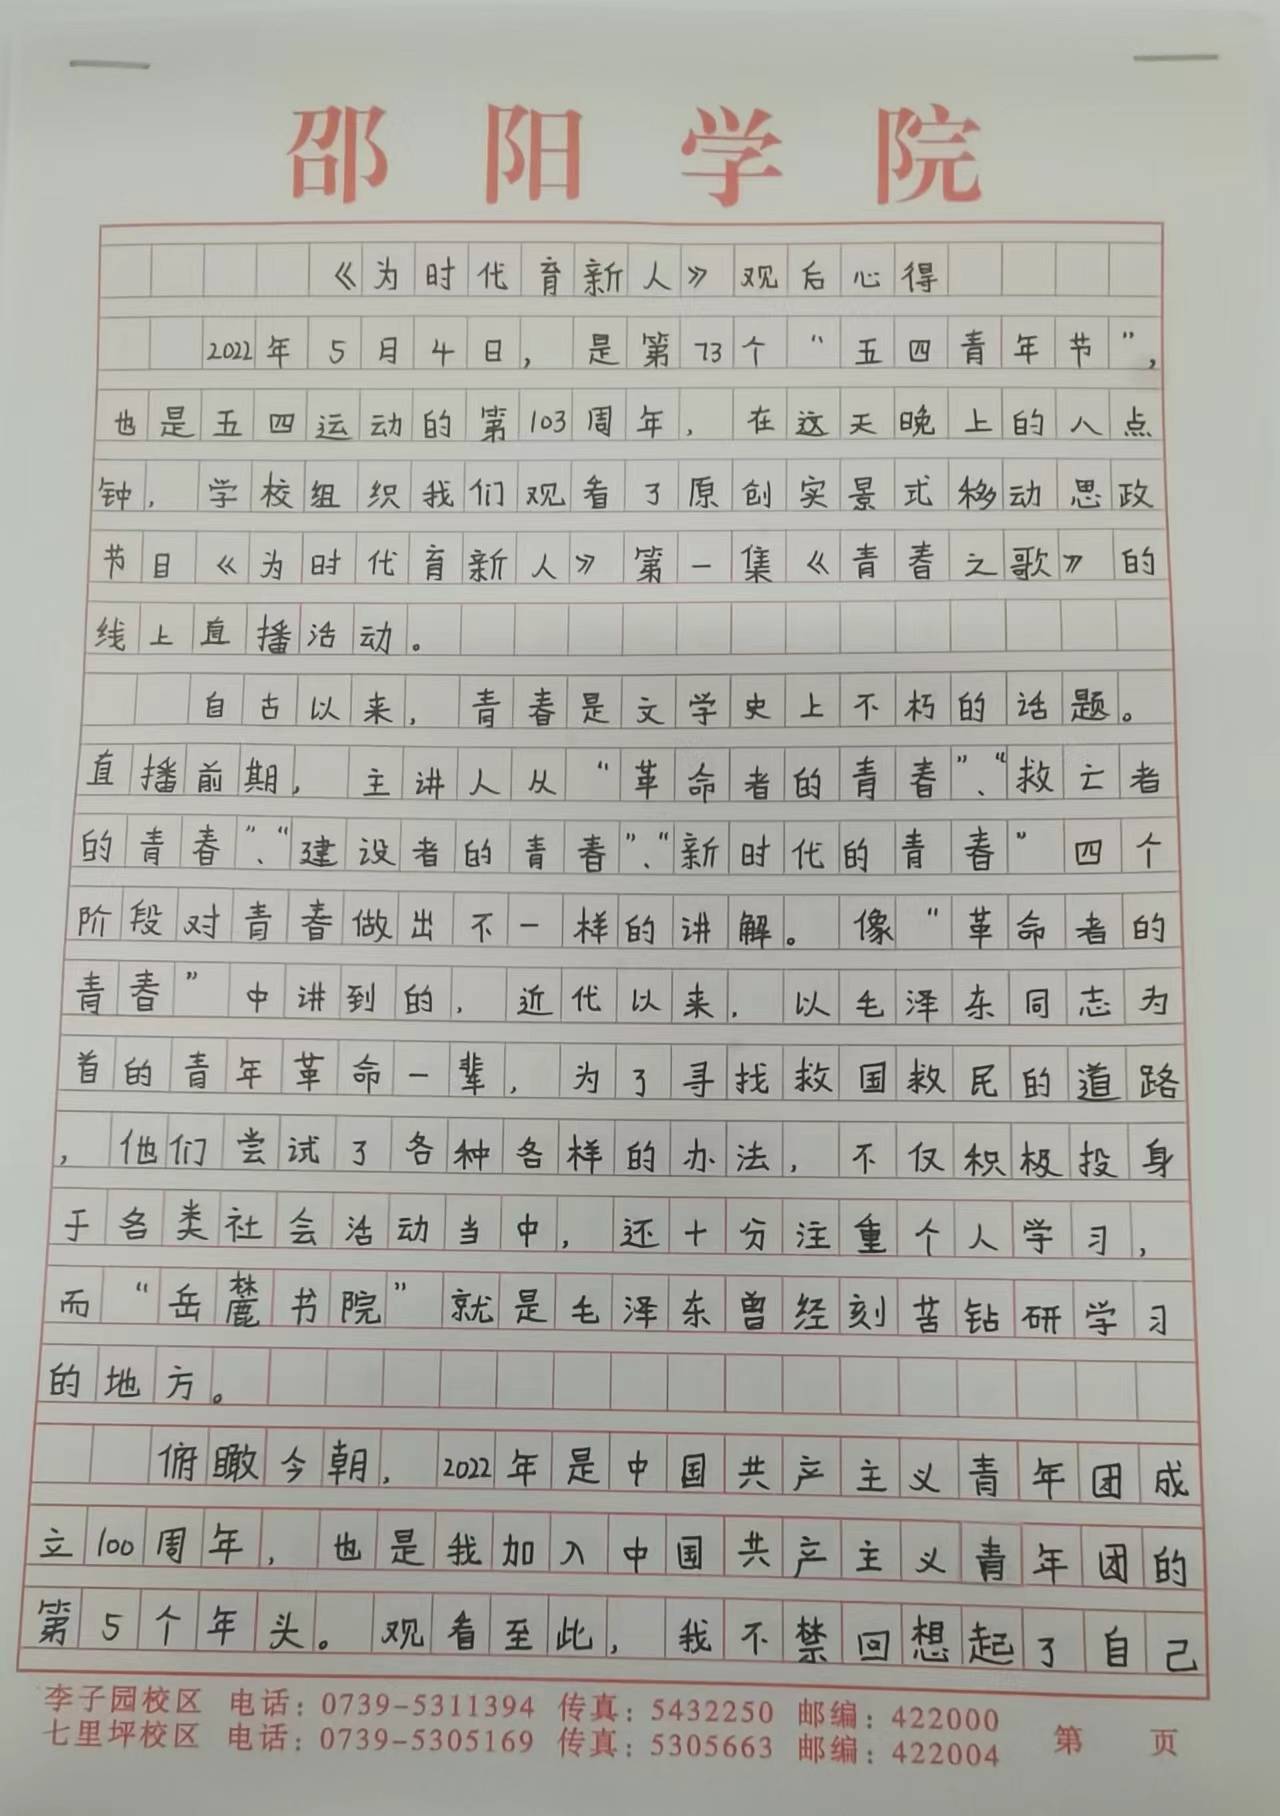 邵阳学院
《为时代育新人》观后心得
2022年5月4日，是第73个“五四青年节”，
也是五四运动的第103周年，在这天晚上的八点
钟，学校组织我们观看了原创实景式移动思政
节目《为时代育新人》第一集《青春之歌》的
线上直播活动。
自古以来，青春是文学史上不朽的话题。
直播前期，主讲人从“革命者的青春”、“救亡者
的青春”、“建设者的青春”、“新时代的青春”四个
阶段对青春做出不一样的讲解。像“革命者的
青春”中讲到的，近代以来，以毛泽东同志为
首的青年革命一辈，为了寻找救国救民的道路
，他们尝试了各种各样的办法，不仅积极投身
于各类社会活动当中，还十分注重个人学习，
而“岳麓书院”就是毛泽东曾经刻苦钻研学习
的地方。
俯瞰今朝，2022年是中国共产主义青年团成
立100周年，也是我加入中国共产主义青年团的
第5个年头。观看至此，我不禁回想起了自己
李子园校区 电话：0739-5311394 传真：5432250 邮编：422000
七里坪校区 电话：0739-5305169 传真：5305663 邮编：422004 第 页